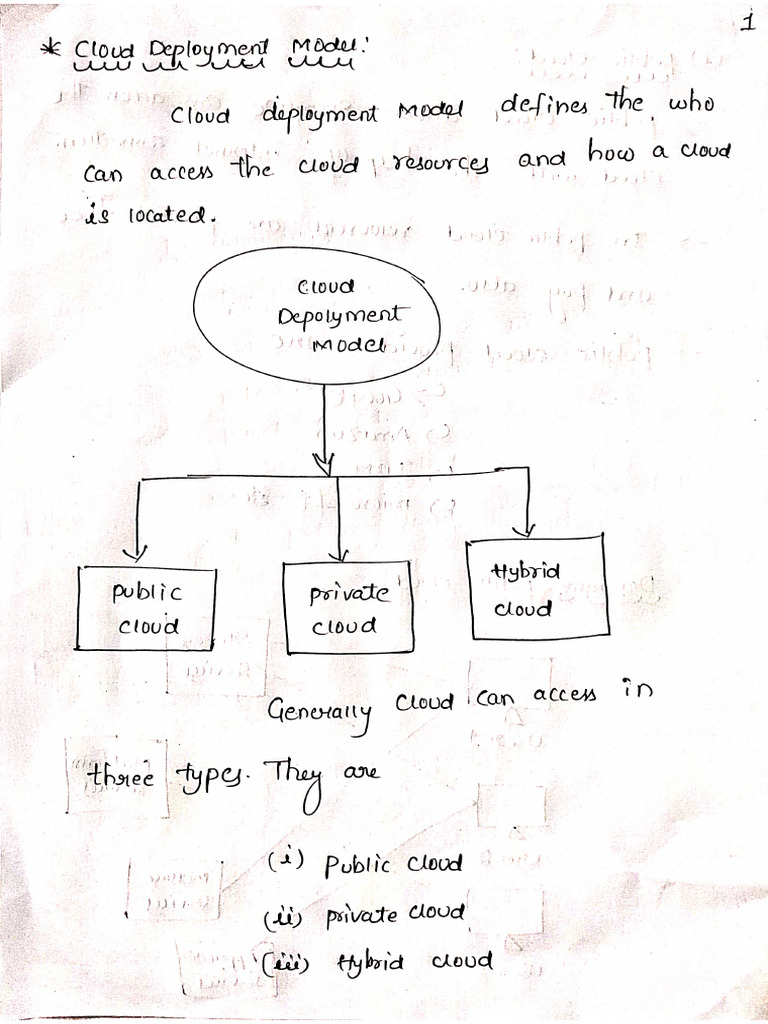 1
* Cloud Deployment Model:
Cloud deployment Model defines the who
can access the cloud resources and how a cloud
is located.
Cloud
Depolyment
Model
Public
cloud
Private
cloud
Hybrid
cloud
Generally cloud can access in
three types. They are
(i) Public cloud
(ii) private cloud
(iii) Hybrid cloud